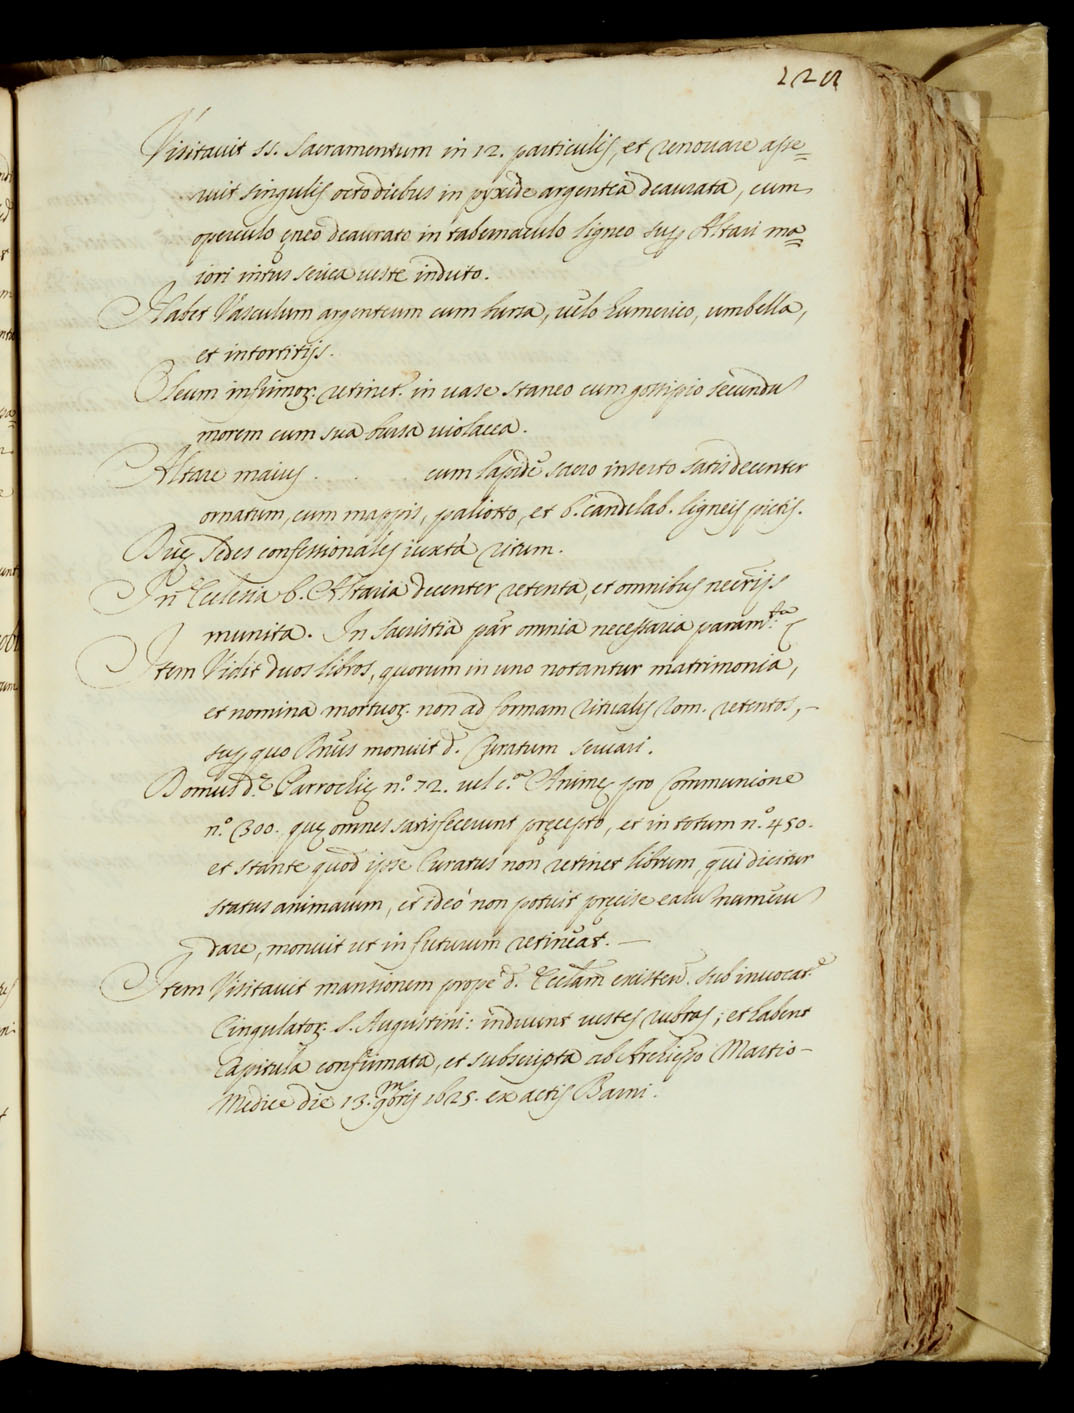 Visitauit ss. Sacramentum in 12. particulis, et renouare asse=
ruit singulis octo diebus in pyxide argentea deaurata, cum
operculo ęneo deaurato in tabernaculo ligneo sup. Altari ma=
iori intus serica ueste induto.
Habet Vasculum argenteum cum bursa, uelo humerico, umbella,
et intortitijs.
Oleum infirmoꝝ. retinet. in uase staneo cum gossipio secundu
morem cum sua bursa uiolacea.
Altare maius . . . . . cum lapide sacro inserto satis decenter
ornatum, cum mappis, paliotto, et 6. candelab. ligneis pictis.
Duę Sedes confessionales iuxta ritum.
In Ecclesia 6. Altaria decenter retenta, et omnibus necrijs
munita. In sacristia par omnia necessaria param.ta
Item Vidit duos libros, quorum in uno notantur matrimonia,
et nomina mortuoꝝ. non ad formam ritualis Rom. retentos, –
sup. quo monuit d. Curatum seruari.
Domus d.ę Parrochię n.º 72. uel c.a Animę pro Communione
n.º 300. quę omnes satisfecerunt pręcepto, et in totum n.º 450.
et stante quod ipse Curatus non retinet librum, qui dicitur
status animarum, et ideo non potuit pręcise earu numeru
dare, monuit ut in futurum retineat. –
Item Visitauit mansionem prope d. Ecclam existen. sub inuocat.e
Cingulatoꝝ. S. Augustini: induunt uestes rubras; et habent
Capitula confirmata, et subscripta ab Archiepo Martio –
Medice die 13. 9mbris 1625. ex actis Barni.